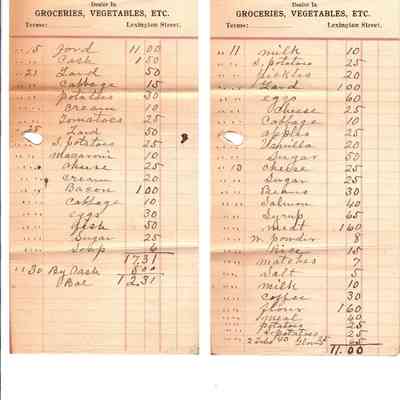 Dealer In
GROCERIES, VEGETABLES, ETC.
Terms: Lexington Street.
" " 5 Ford 11 00
" " Cash 1 50
" " 21 Lard 50
" " Cabbage 15
" " potatoes 30
" " cream 10
" " Tomatoes 25
" " 25 Lard 50
" " S. potatoes 25
" " macaroni 10
" " cheese 25
" " cream 20
" " Bacon 1 00
" " Cabbage 10
" " eggs 30
" " fish 50
" " Sugar 25
" " Soap 6
17.31
" " 30 By Cash 5.00
" " Bal 12.31
Dealer In
GROCERIES, VEGETABLES, ETC.
Terms: Lexington Street.
" 11 milk 10
" " S. potatoes 25
" " pickles 20
" " Lard 1 00
" " eggs 60
" " Cheese 25
" " Cabbage 10
" " apples 25
" " Vanilla 20
" " Sugar 50
" " 13 cheese 25
" " Sugar 25
" " Beans 30
" " Salmon 40
" " Syrup 65
" " meat 1 60
" " W. powder 8
" " Rice 15
" " matches 7
" " Salt 5
" " milk 10
" " coffee 30
" " flour 1 60
" " meal 40
" " potatoes 25
" " S potatoes 25
2 40 65
11.00